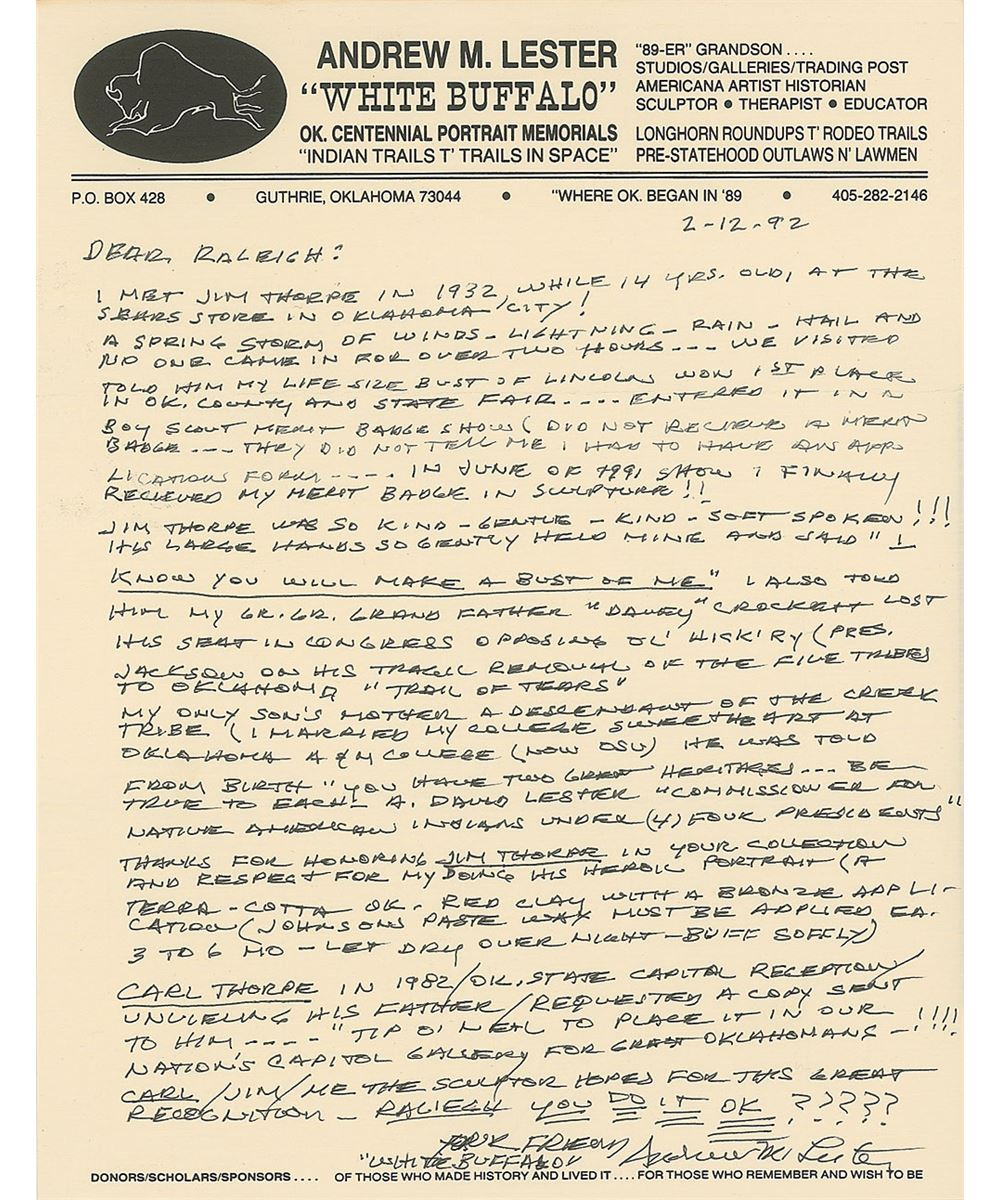 ANDREW M. LESTER
"WHITE BUFFALO"
OK. CENTENNIAL PORTRAIT MEMORIALS
"INDIAN TRAILS T' TRAILS IN SPACE"
"89-ER" GRANDSON ....
STUDIOS/GALLERIES/TRADING POST
AMERICANA ARTIST HISTORIAN
SCULPTOR • THERAPIST • EDUCATOR
LONGHORN ROUNDUPS T' RODEO TRAILS
PRE-STATEHOOD OUTLAWS N' LAWMEN
P.O. BOX 428 • GUTHRIE, OKLAHOMA 73044 • "WHERE OK. BEGAN IN '89 • 405-282-2146
2-12-92
DEAR RALEIGH:
I MET JIM THORPE IN 1932, WHILE 14 YRS. OLD, AT THE
SEARS STORE IN OKLAHOMA CITY!
A SPRING STORM OF WINDS - LIGHTNING - RAIN - HAIL AND
NO ONE CAME IN FOR OVER TWO HOURS --- WE VISITED
TOLD HIM MY LIFE SIZE BUST OF LINCOLN WON 1ST PLACE
IN OK. COUNTY AND STATE FAIR .... ENTERED IT IN A
BOY SCOUT MERIT BADGE SHOW (DID NOT RECIEVE A MERIT
BADGE --- THEY DID NOT TELL ME I HAD TO HAVE AN APP
LICATION FORM ---- IN JUNE OF 1991 SHOW I FINALLY
RECIEVED MY MERIT BADGE IN SCULPTURE!!
JIM THORPE WAS SO KIND - GENTLE - KIND - SOFT SPOKEN!!!
HIS LARGE HANDS SO GENTLY HELD MINE AND SAID "I
KNOW YOU WILL MAKE A BUST OF ME" I ALSO TOLD
HIM MY GR. GR. GRAND FATHER "DAVEY" CROCKETT LOST
HIS SEAT IN CONGRESS OPPOSING OL' HICK'RY (PRES.
JACKSON ON HIS TRAGIC REMOVAL OF THE FIVE TRIBES
TO OKLAHOMA "TRAIL OF TEARS"
MY ONLY SON'S MOTHER A DESCENDANT OF THE CREEK
TRIBE (I MARRIED MY COLLEGE SWEETHEART AT
OKLAHOMA A & M COLLEGE (NOW OSU) HE WAS TOLD
FROM BIRTH "YOU HAVE TWO GREAT HERITAGES --- BE
TRUE TO EACH! A. DAVID LESTER "COMMISSIONER FOR
NATIVE AMERICAN INDIANS UNDER (4) FOUR PRESIDENTS"
THANKS FOR HONORING JIM THORPE IN YOUR COLLECTION
AND RESPECT FOR MY DOING HIS HEROIC PORTRAIT (A
TERRA-COTTA OK. RED CLAY WITH A BRONZE APPLI-
CATION (JOHNSONS PASTE WAX MUST BE APPLIED EA.
3 TO 6 MO - LET DRY OVER NIGHT - BUFF SOFTLY)
CARL THORPE IN 1982/OK. STATE CAPITOL RECEPTION/
UNVIELING HIS FATHER/REQUESTED A COPY SENT
TO HIM ---- "TIP O'NEAL TO PLACE IT IN OUR
NATION'S CAPITOL GALLERY FOR GREAT OKLAHOMANS -!!!!
CARL/JIM/ME THE SCULPTOR HOPES FOR THIS GREAT
RECOGNITION - RALIEGH YOU DO IT OK ?????
YOUR FRIEND
"WHITE BUFFALO" Andrew M Lester
DONORS/SCHOLARS/SPONSORS .... OF THOSE WHO MADE HISTORY AND LIVED IT .... FOR THOSE WHO REMEMBER AND WISH TO BE